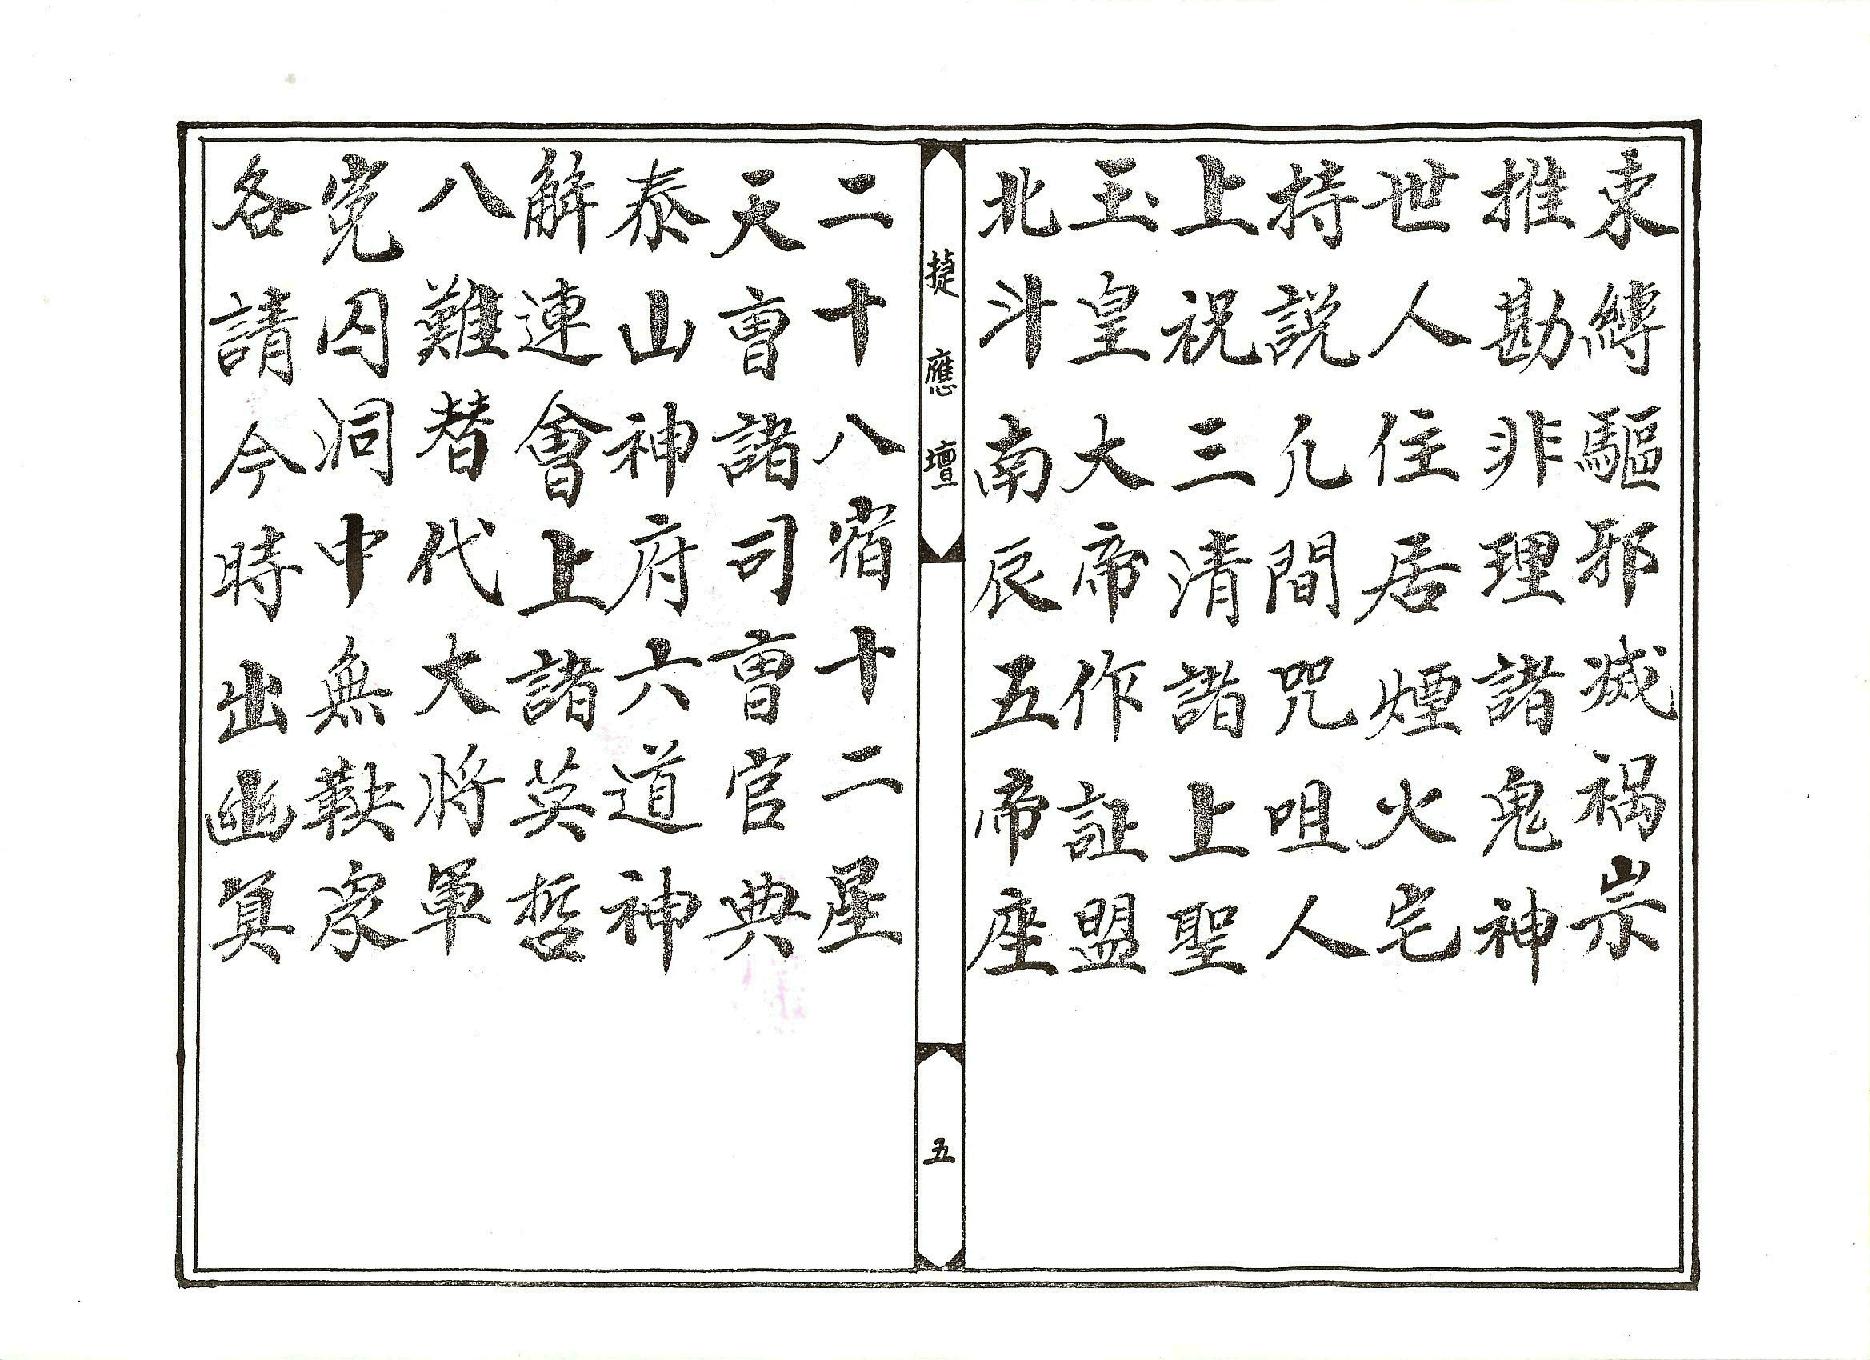 束縛驅邪滅禍祟
推勘非理諸鬼神
世人住居煙火宅
持說凢間咒咀人
上祝三清諸上聖
玉皇大帝作証盟
北斗南辰五帝座
捷應壇
五
二十八宿十二星
天曹諸司曹官典
泰山神府六道神
解連會上諸英哲
八難替代大将軍
冤囚洞中無鞅眾
各請今時出幽冥